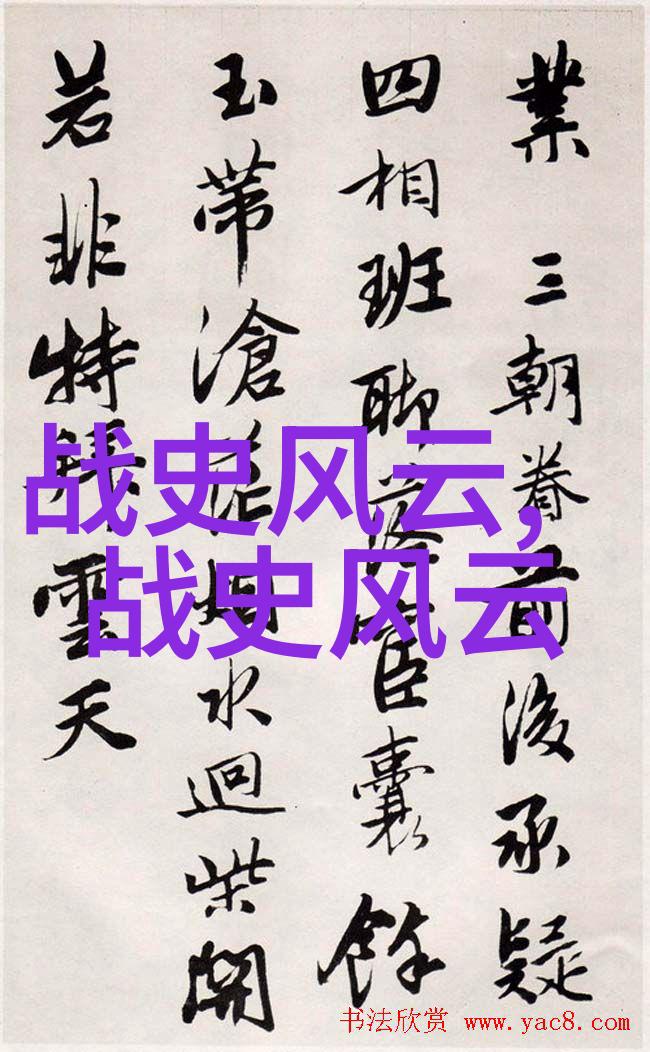 業 三朝眷前後承疑
四相班聊宦囊餘
玉帶滄水迴柴關
若非特雲天
战史风云,
战史风云
书法欣赏 www.yac8.com